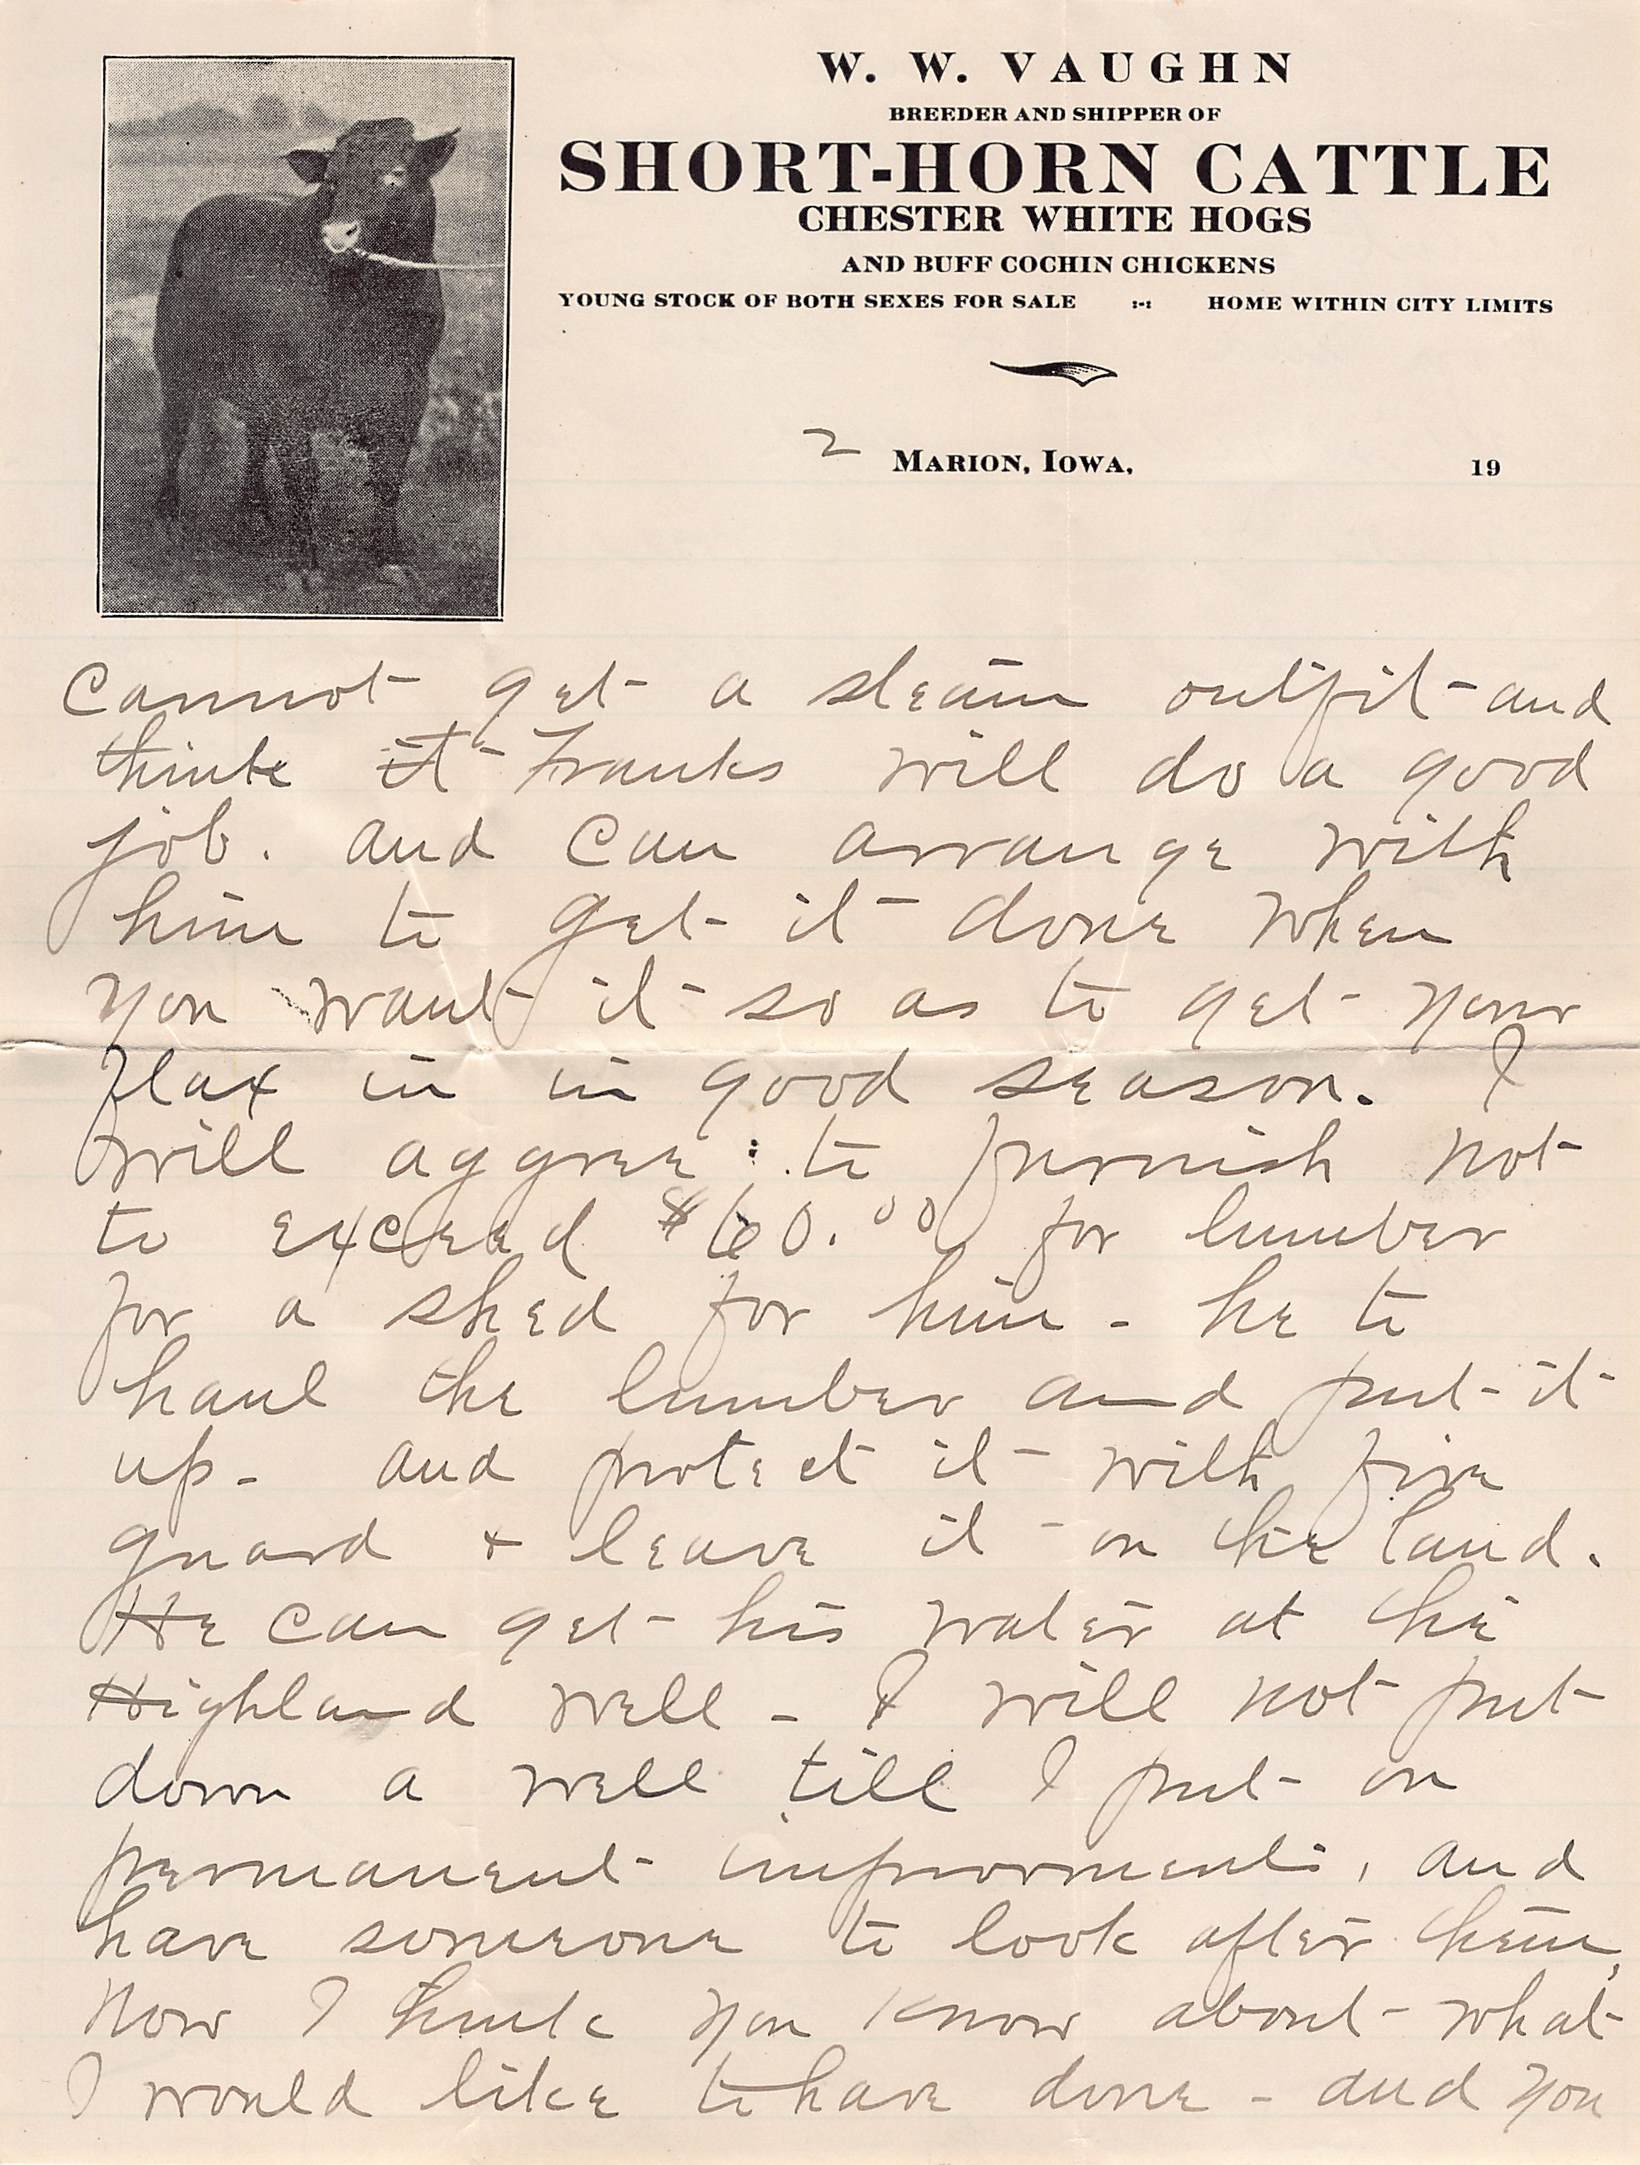 W. W. VAUGHN
BREEDER AND SHIPPER OF
SHORT-HORN CATTLE
CHESTER WHITE HOGS
AND BUFF COCHIN CHICKENS
YOUNG STOCK OF BOTH SEXES FOR SALE :-: HOME WITHIN CITY LIMITS
2 MARION, IOWA, 19
Cannot get a steam outfit and
think it Franks will do a good
job. and can arrange with
him to get it done when
you want it so as to get your
flax in in good season. I
will aggree to furnish not
to exceed $60.00 for lumber
for a shed for him - he to
haul the lumber and put it
up - and protect it with fire
guard + leave it on the land.
He can get his water at the
Highland well - I will not put
down a well till I put on
permanent improvments, and
have someone to look after them,
Now I think you know about what
I would like to have done - and you